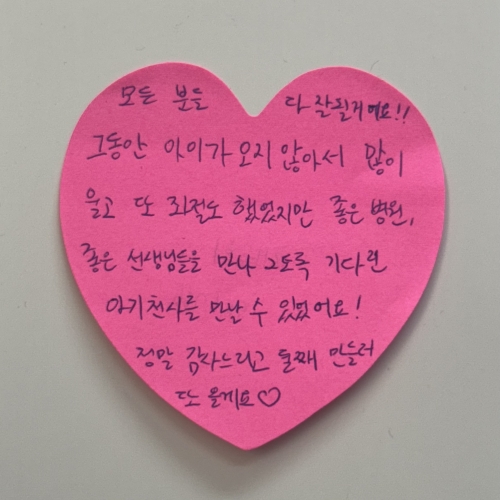 모든 분들 다 잘될거예요!!
그동안 아이가 오지 않아서 많이
울고 또 좌절도 했었지만 좋은 병원,
좋은 선생님들을 만나 그토록 기다린
아기천사를 만날 수 있었어요!
정말 감사드리고 둘째 만들러
또 올게요♡